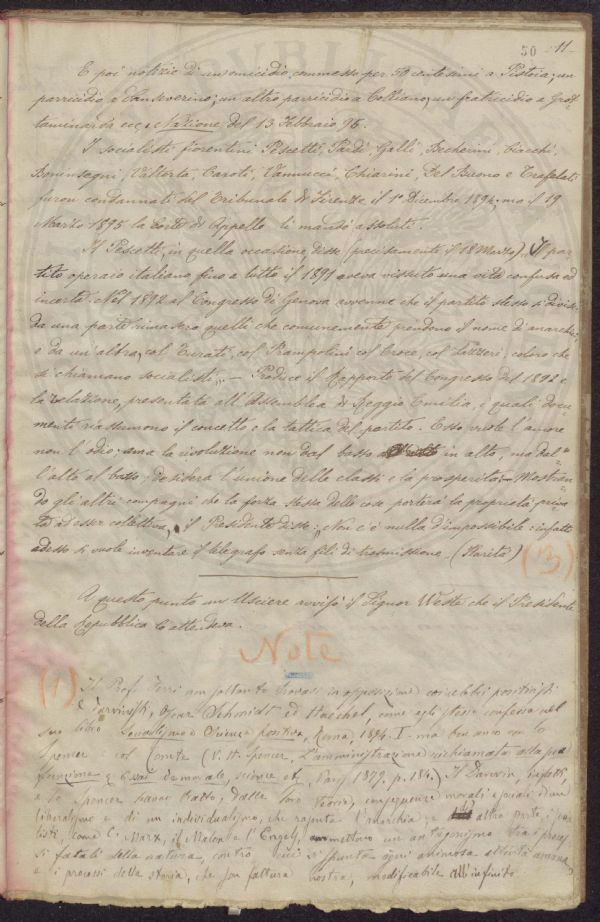 50 11
E poi notizie di un omicidio commesso per 50 centesimi a Pistoia; un
parricidio a Sanseverino; un altro parricidio a Colliano; un fratricidio a Grot-
taminarda ecc. Nazione del 13 Febbraio 96.
I socialisti fiorentini Pescetti, Pardi, Galli, Becherini, Ciucchi,
Boninsegni, Valtorta, Caroti, Vannucci, Chiarini, Del Buono e
furon condannati dal Tribunale di Firenze il 1° Dicembre 1894; ma il 19
Marzo 1895 la Corte di Appello li mandò assoluti.
Il Pescetti, in quella occasione, disse (precisamente il 18 Marzo) Il par-
tito operaio italiano fino a tutto il 1891 aveva vissuto una vita confusa ed
incerta. Nel 1892 al Congresso di Genova avvenne che il partito stesso si divise:
da una parte rimasero quelli che comunemente prendono il nome di anarchici
e da un'altra, col Turati, col Prampolini col Croce, col Lazzari, coloro che
si chiamano socialisti„ — Produce il Rapporto del Congresso del 1892 e
la relazione, presentata all'Assemblea di Reggio Emilia, i quali docu-
menti riassumono il concetto e la tattica del partito. Esso vuole l'amore
non l'odio; ama la rivoluzione non dal basso in alto, ma dal-
l'alto al basso; desidera l'unione delle classi e la prosperità. Mostran-
do gli altri compagni che la forza stessa delle cose porterà la proprietà priva-
ta ad esser collettiva, il Presidente disse: „Non c'è nulla d'impossibile: infatti
adesso si vuole inventare il telegrafo senza fili di trasmissione. (Ilarità) (13)
A questo punto un Usciere avvisò il Signor Weste che il Presidente
della Repubblica lo attendeva.
Note
(1) Il Prof. Ferri non soltanto trovasi in opposizione coi celebri positivisti
e darvinisti, Oscar Schmidt ed Haeckel, come egli stesso confessa nel
suo libro Socialismo e Scienza positiva, Roma 1894. I - ma ben anco con lo
Spencer e col Comte (V. H. Spencer, L'amministrazione richiamata alla sua
funzione e Essai de morale, science etc, Paris 1879. p. 184.) Il Darwin, infatti,
e lo Spencer hanno tratto, dalle loro teorie, conseguenze morali e sociali d'un
liberalismo e di un individualismo, che rasenta l'anarchia; e altra parte, i socia-
listi, come C. Marx, il Malon e l'Engels, ammettono un antagonismo tra i proces-
si fatali della natura, contro cui si spunta ogni animosa attività umana,
e i processi della storia, che son fattura nostra, modificabile all'infinito